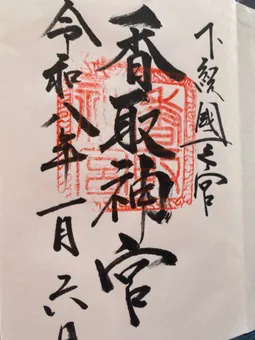 下総國一之宮
香取神宮
令和八年一月六日